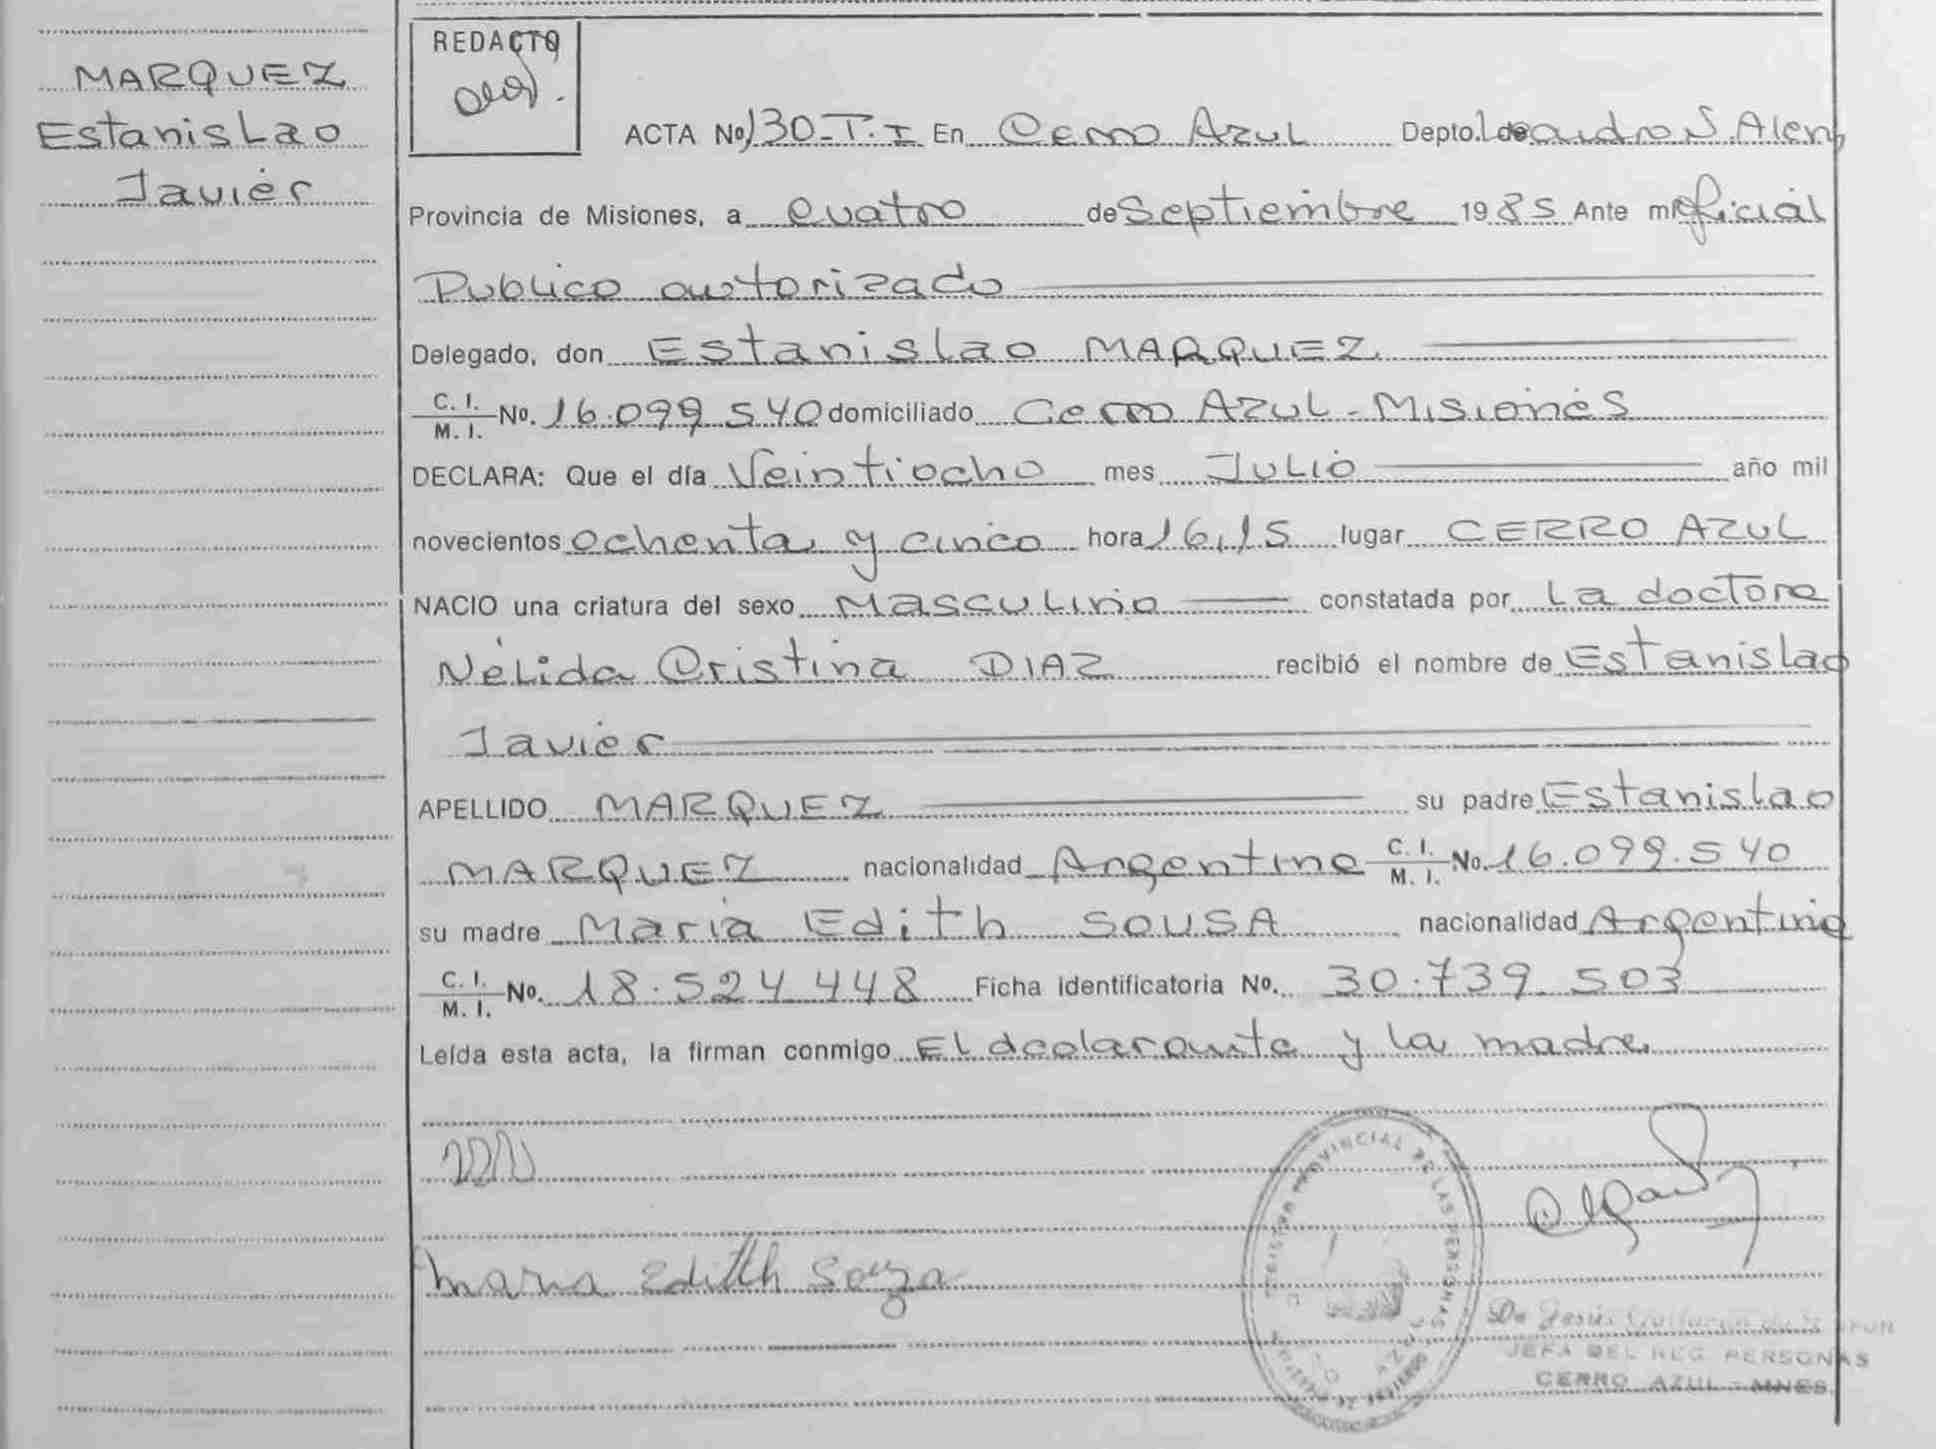 MARQUEZ
Estanislao
Javier
REDACTO
ACTA No 130-T.I En Cerro Azul Depto. Leandro N. Alem
Provincia de Misiones, a cuatro de Septiembre 1985 Ante mi Oficial
Publico autorizado
Delegado, don Estanislao MARQUEZ
C. I. / M. I. No. 16.099.540 domiciliado Cerro AZUL - Misiones
DECLARA: Que el día Veintiocho mes Julio año mil
novecientos ochenta y cinco hora 16,15 lugar CERRO AZUL
NACIO una criatura del sexo Masculino constatada por La doctora
Nélida Cristina DIAZ recibió el nombre de Estanislao
Javier
APELLIDO MARQUEZ su padre Estanislao
MARQUEZ nacionalidad Argentina C. I. / M. I. No. 16.099.540
su madre Maria Edith SOUSA nacionalidad Argentina
C. I. / M. I. No. 18.524.448 Ficha identificatoria No. 30.739.503
Leída esta acta, la firman conmigo El declarante y la madre
REGISTRO PROVINCIAL DE LAS PERSONAS
Maria Edith Souza
JEFA DEL REG. PERSONAS
CERRO AZUL - MNES.